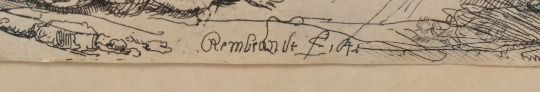 Rembrandt f. 164